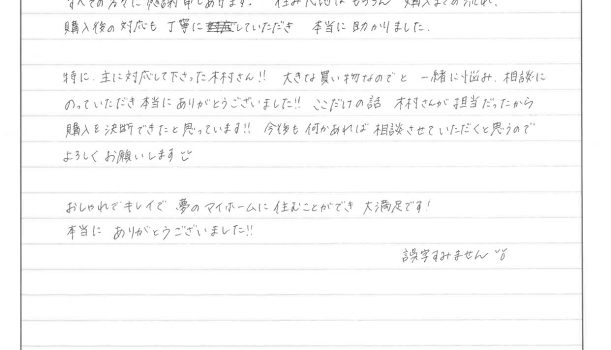 すべての方々に感謝申しあります. 住み心地はもちろん 購入までの流れ,
購入後の対応も 丁寧にしていただき 本当に助かりました.
特に, 主に対応して下さった木村さん!! 大きな買い物なのでと 一緒に悩み, 相談に
のっていただき本当にありがとうございました!! ここだけの話 木村さんが担当だったから
購入を決断できたと思っています!! 今後も何かあれば 相談させていただくと思うので
よろしくお願いします
おしゃれでキレイで 夢のマイホームに住むことができ 大満足です!
本当に ありがとうございました!!
誤字すみません